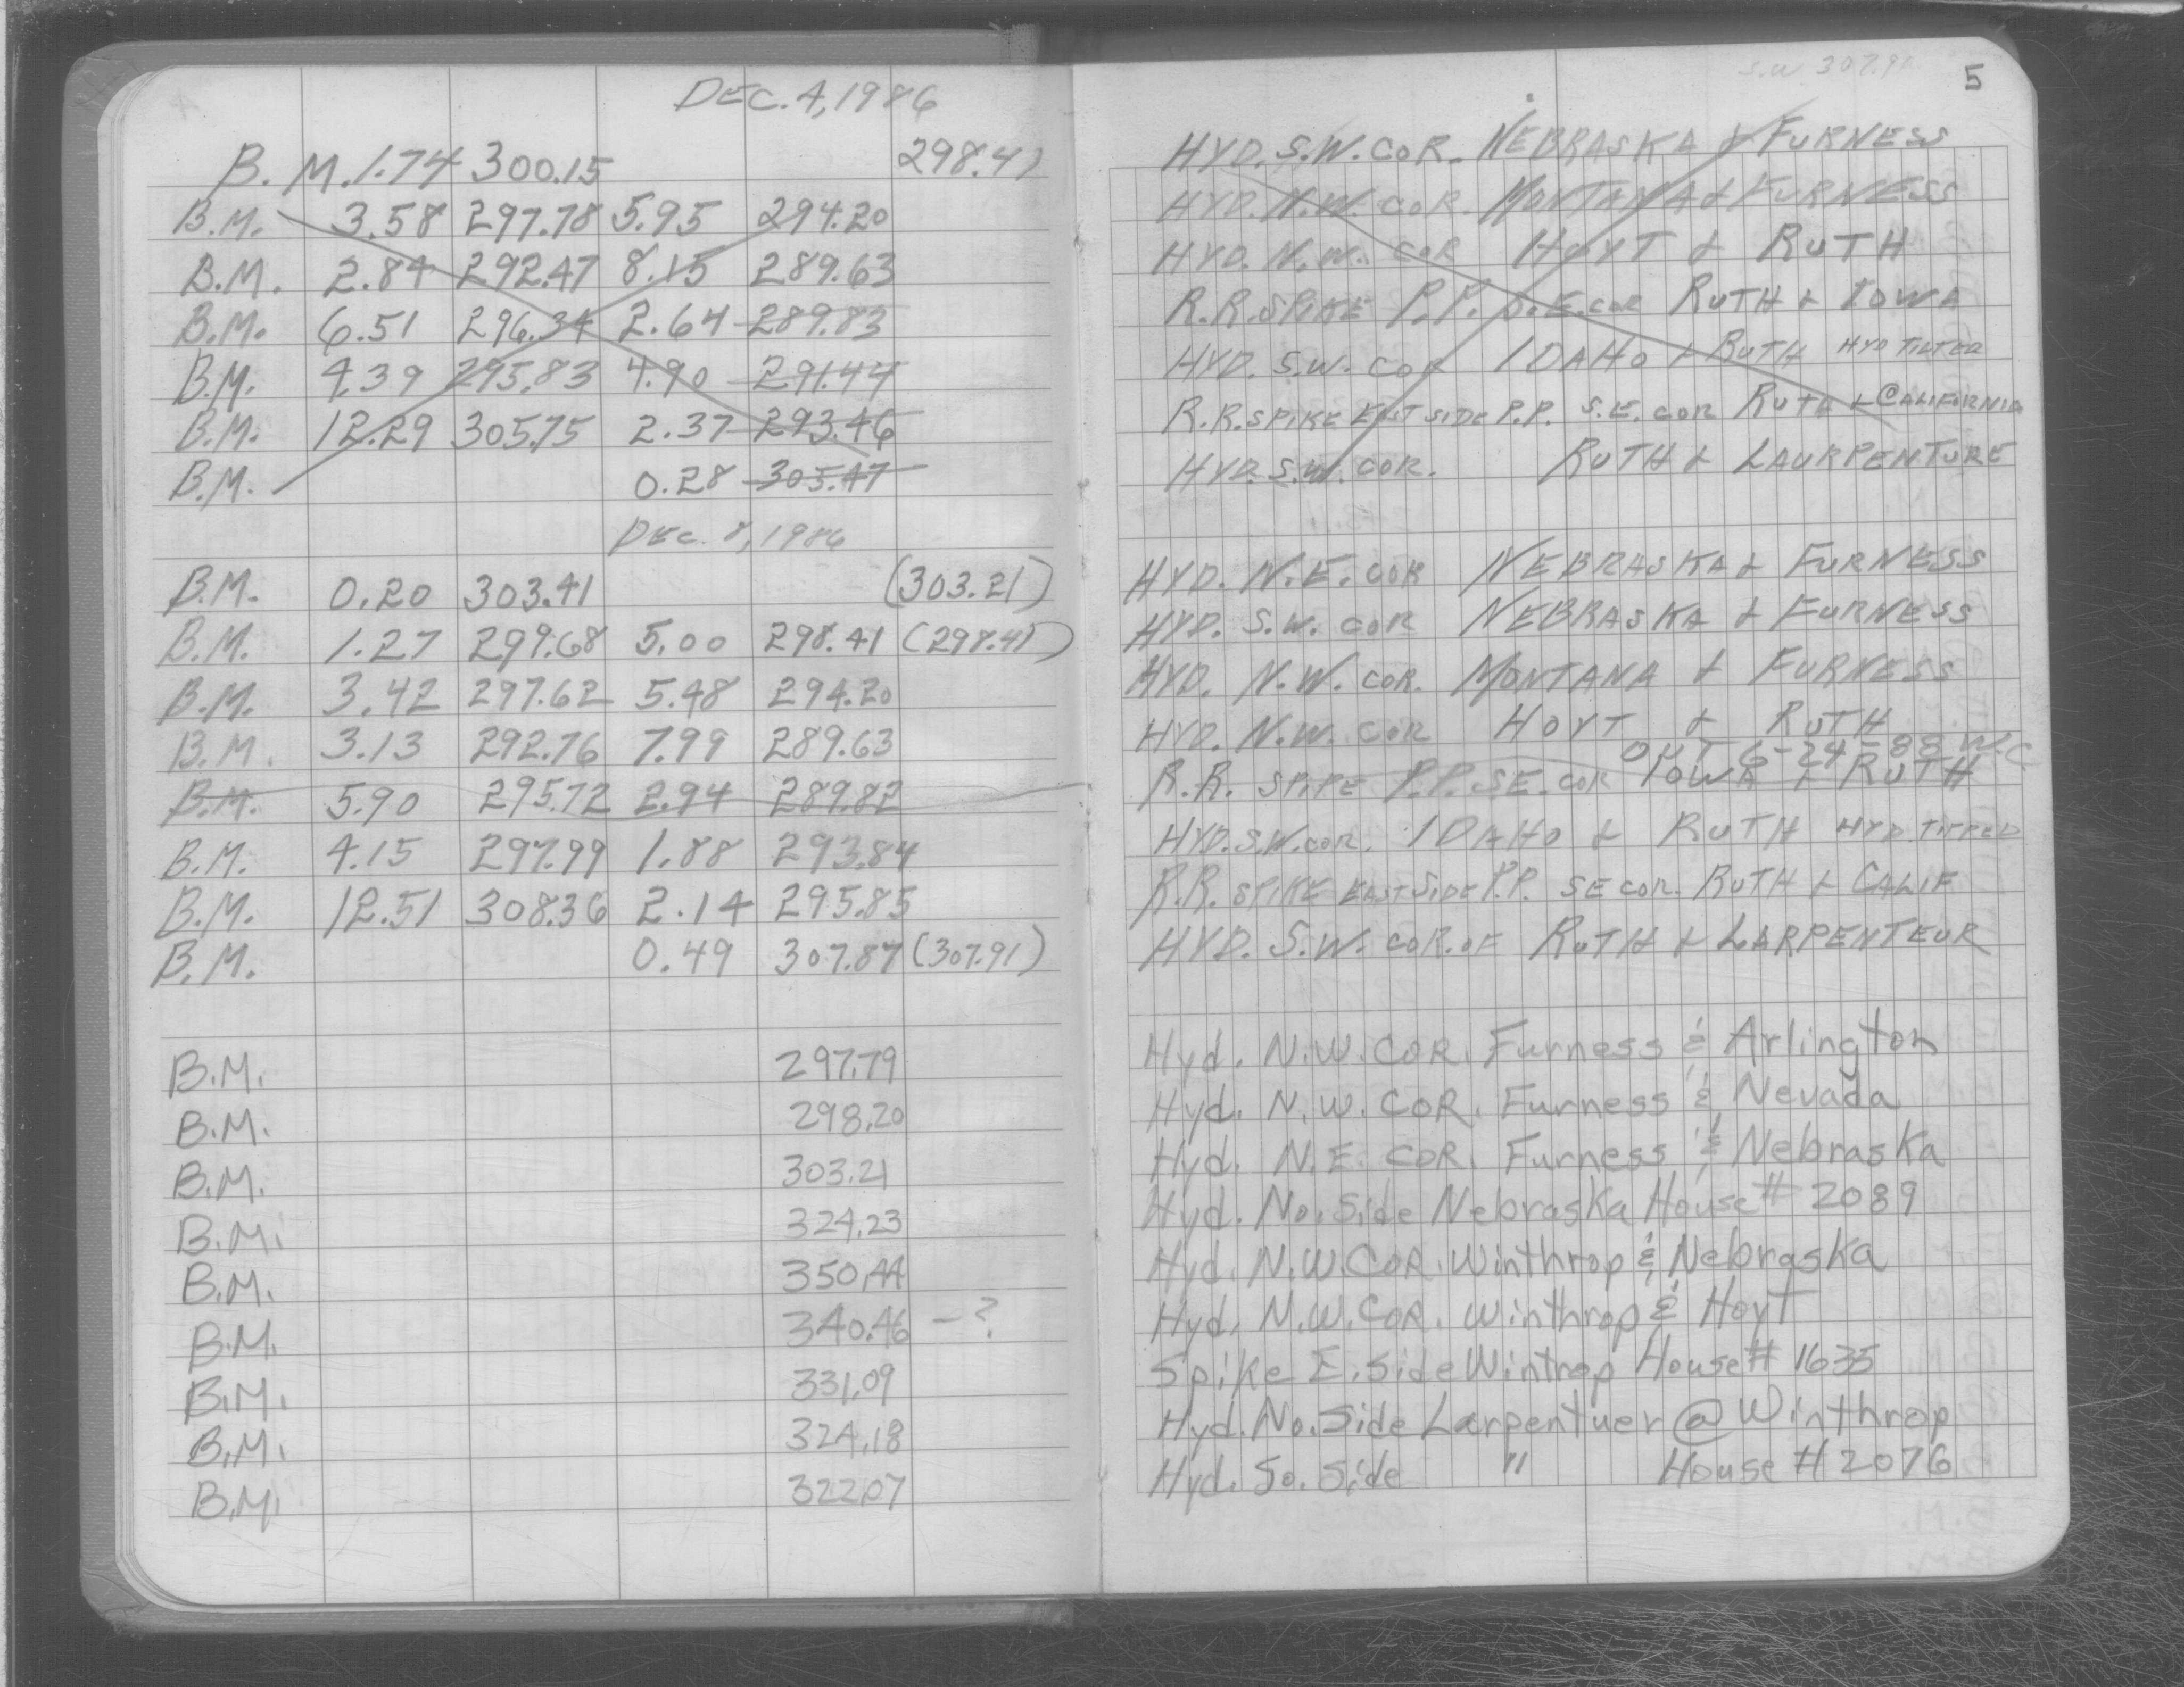 DEC. 4, 1986
B.M. 1.74 300.15 298.41
B.M. 3.58 297.78 5.95 294.20
B.M. 2.84 292.47 8.15 289.63
B.M. 6.51 296.34 2.64 289.83
B.M. 4.39 295.83 4.90 291.44
B.M. 12.29 305.75 2.37 293.46
B.M. 0.28 305.47
DEC. 8, 1986
B.M. 0.20 303.41 (303.21)
B.M. 1.27 299.68 5.00 298.41 (298.41)
B.M. 3.42 297.62 5.48 294.20
B.M. 3.13 292.76 7.99 289.63
B.M. 5.90 295.72 2.94 289.82
B.M. 4.15 297.99 1.88 293.84
B.M. 12.51 308.36 2.14 295.85
B.M. 0.49 307.87 (307.91)
B.M. 297.79
B.M. 298.20
B.M. 303.21
B.M. 324.23
B.M. 350.44
B.M. 340.46 - ?
B.M. 331.09
B.M. 324.18
B.M. 322.07
S.W 307.91
5
HYD. S.W. COR. NEBRASKA & FURNESS
HYD. N.W. COR. MONTANA & FURNESS
HYD. N.W. COR HOYT & RUTH
R.R. SPIKE P.P. S.E. COR RUTH & IOWA
HYD. S.W. COR IDAHO & RUTH HYD TILTED
R.R. SPIKE EAST SIDE P.P. S.E. COR RUTH & CALIFORNIA
HYD. S.W. COR. RUTH & LAURPENTURE
HYD. N.E. COR NEBRASKA & FURNESS
HYD. S.W. COR NEBRASKA & FURNESS
HYD. N.W. COR. MONTANA & FURNESS
HYD. N.W. COR HOYT & RUTH
OUT 6-24-88 W.C
R.R. SPIPE P.P. SE. COR IOWA & RUTH
HYD. S.W. COR. IDAHO & RUTH HYD. TIPPED
R.R. SPIKE EAST SIDE P.P. SE COR. RUTH & CALIF
HYD. S.W. COR. OF RUTH & LARPENTEUR
Hyd. N.W. COR. Furness & Arlington
Hyd. N.W. COR. Furness & Nevada
Hyd. N.E. COR. Furness & Nebraska
Hyd. No. Side Nebraska House # 2089
Hyd. N.W. COR. Winthrop & Nebraska
Hyd. N.W. COR. Winthrop & Hoyt
Spike E. Side Wintrop House # 1635
Hyd. No. Side Larpentuer @ Winthrop
Hyd. So. Side " House # 2076